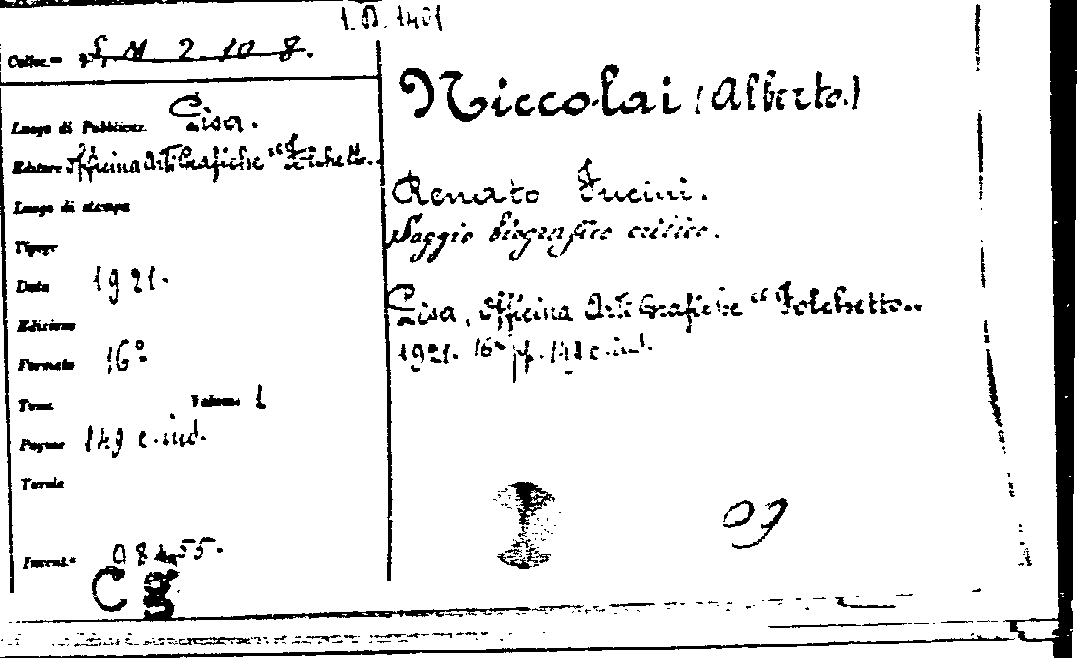 1.D.1401
Colloc.= S, M 2 10 8.
Luogo di Pubblicaz. Pisa.
Editore Officina Arti Grafiche "Folchetto.
Luogo di stampa
Tipogr
Data 1921.
Edizione
Formato 16°
Tomi Volumi 1
Pagine 149 c. ind.
Tavole
Invent.°
Niccolai (Alberto.)
Renato Fucini.
Saggio biografico critico.
Pisa, Officina Arti Grafiche "Folchetto..
1921. 16° pp. 149 c. ind.
09